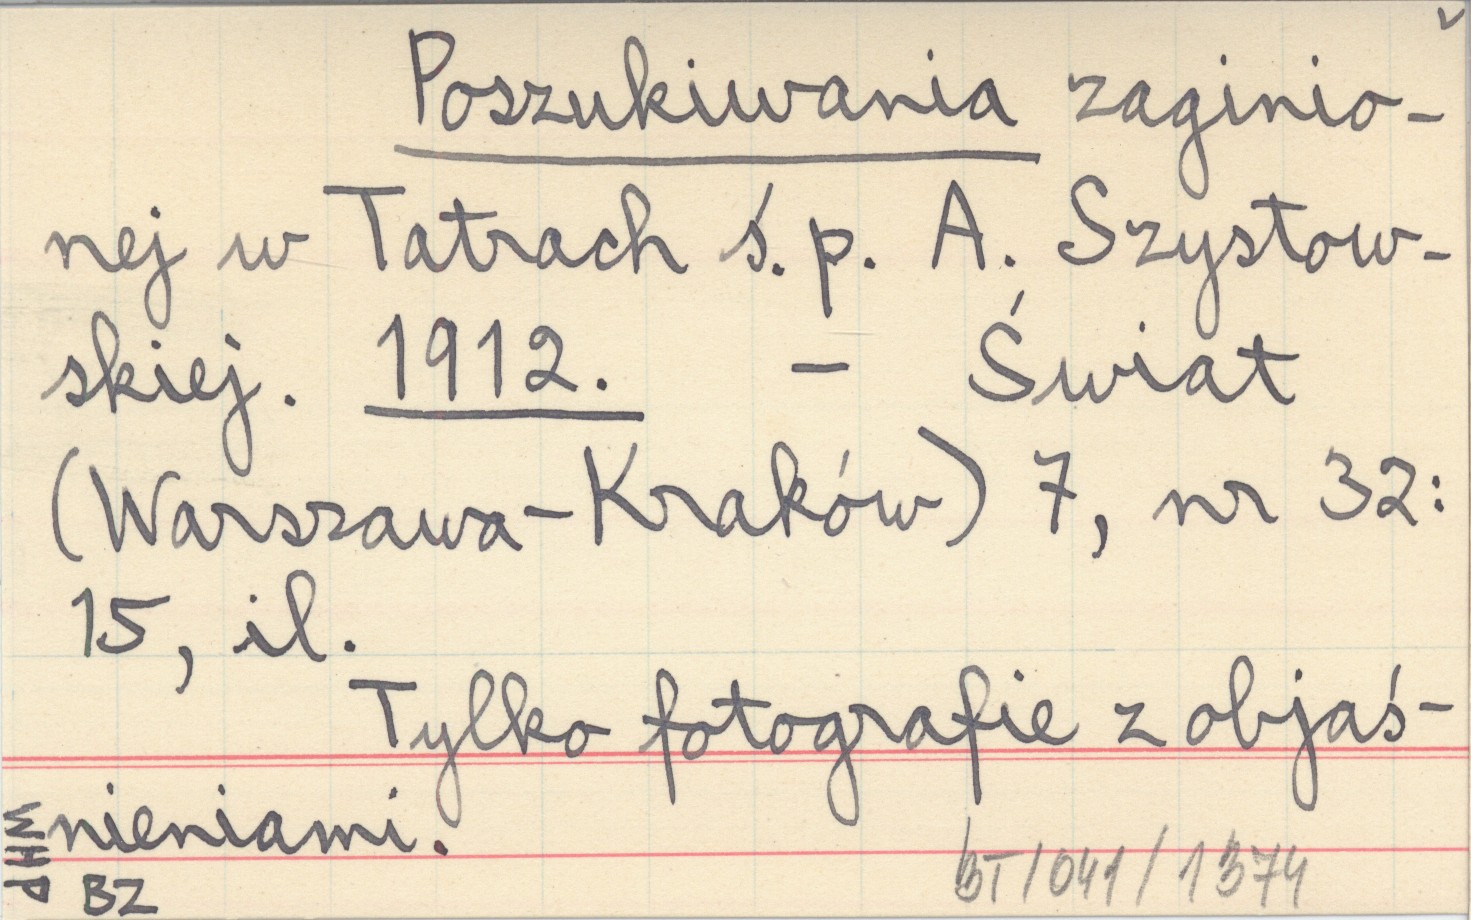 Poszukiwania zaginio-
nej w Tatrach ś. p. A. Szystow-
skiej. 1912. – Świat
(Warszawa-Kraków) 7, nr 32:
15, il.
Tylko fotografie z objaś-
nieniami.
WHP
BZ
BT/041/1374